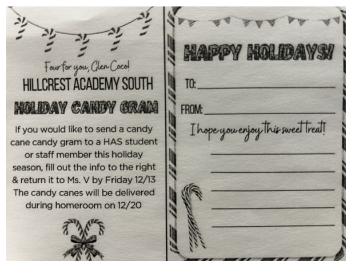 Four for you, Glen Coco!
HILLCREST ACADEMY SOUTH
HOLIDAY CANDY GRAM
If you would like to send a candy
cane candy gram to a HAS student
or staff member this holiday
season, fill out the info to the right
& return it to Ms. V by Friday 12/13
The candy canes will be delivered
during homeroom on 12/20
HAPPY HOLIDAYS!
TO:
FROM:
I hope you enjoy this sweet treat!